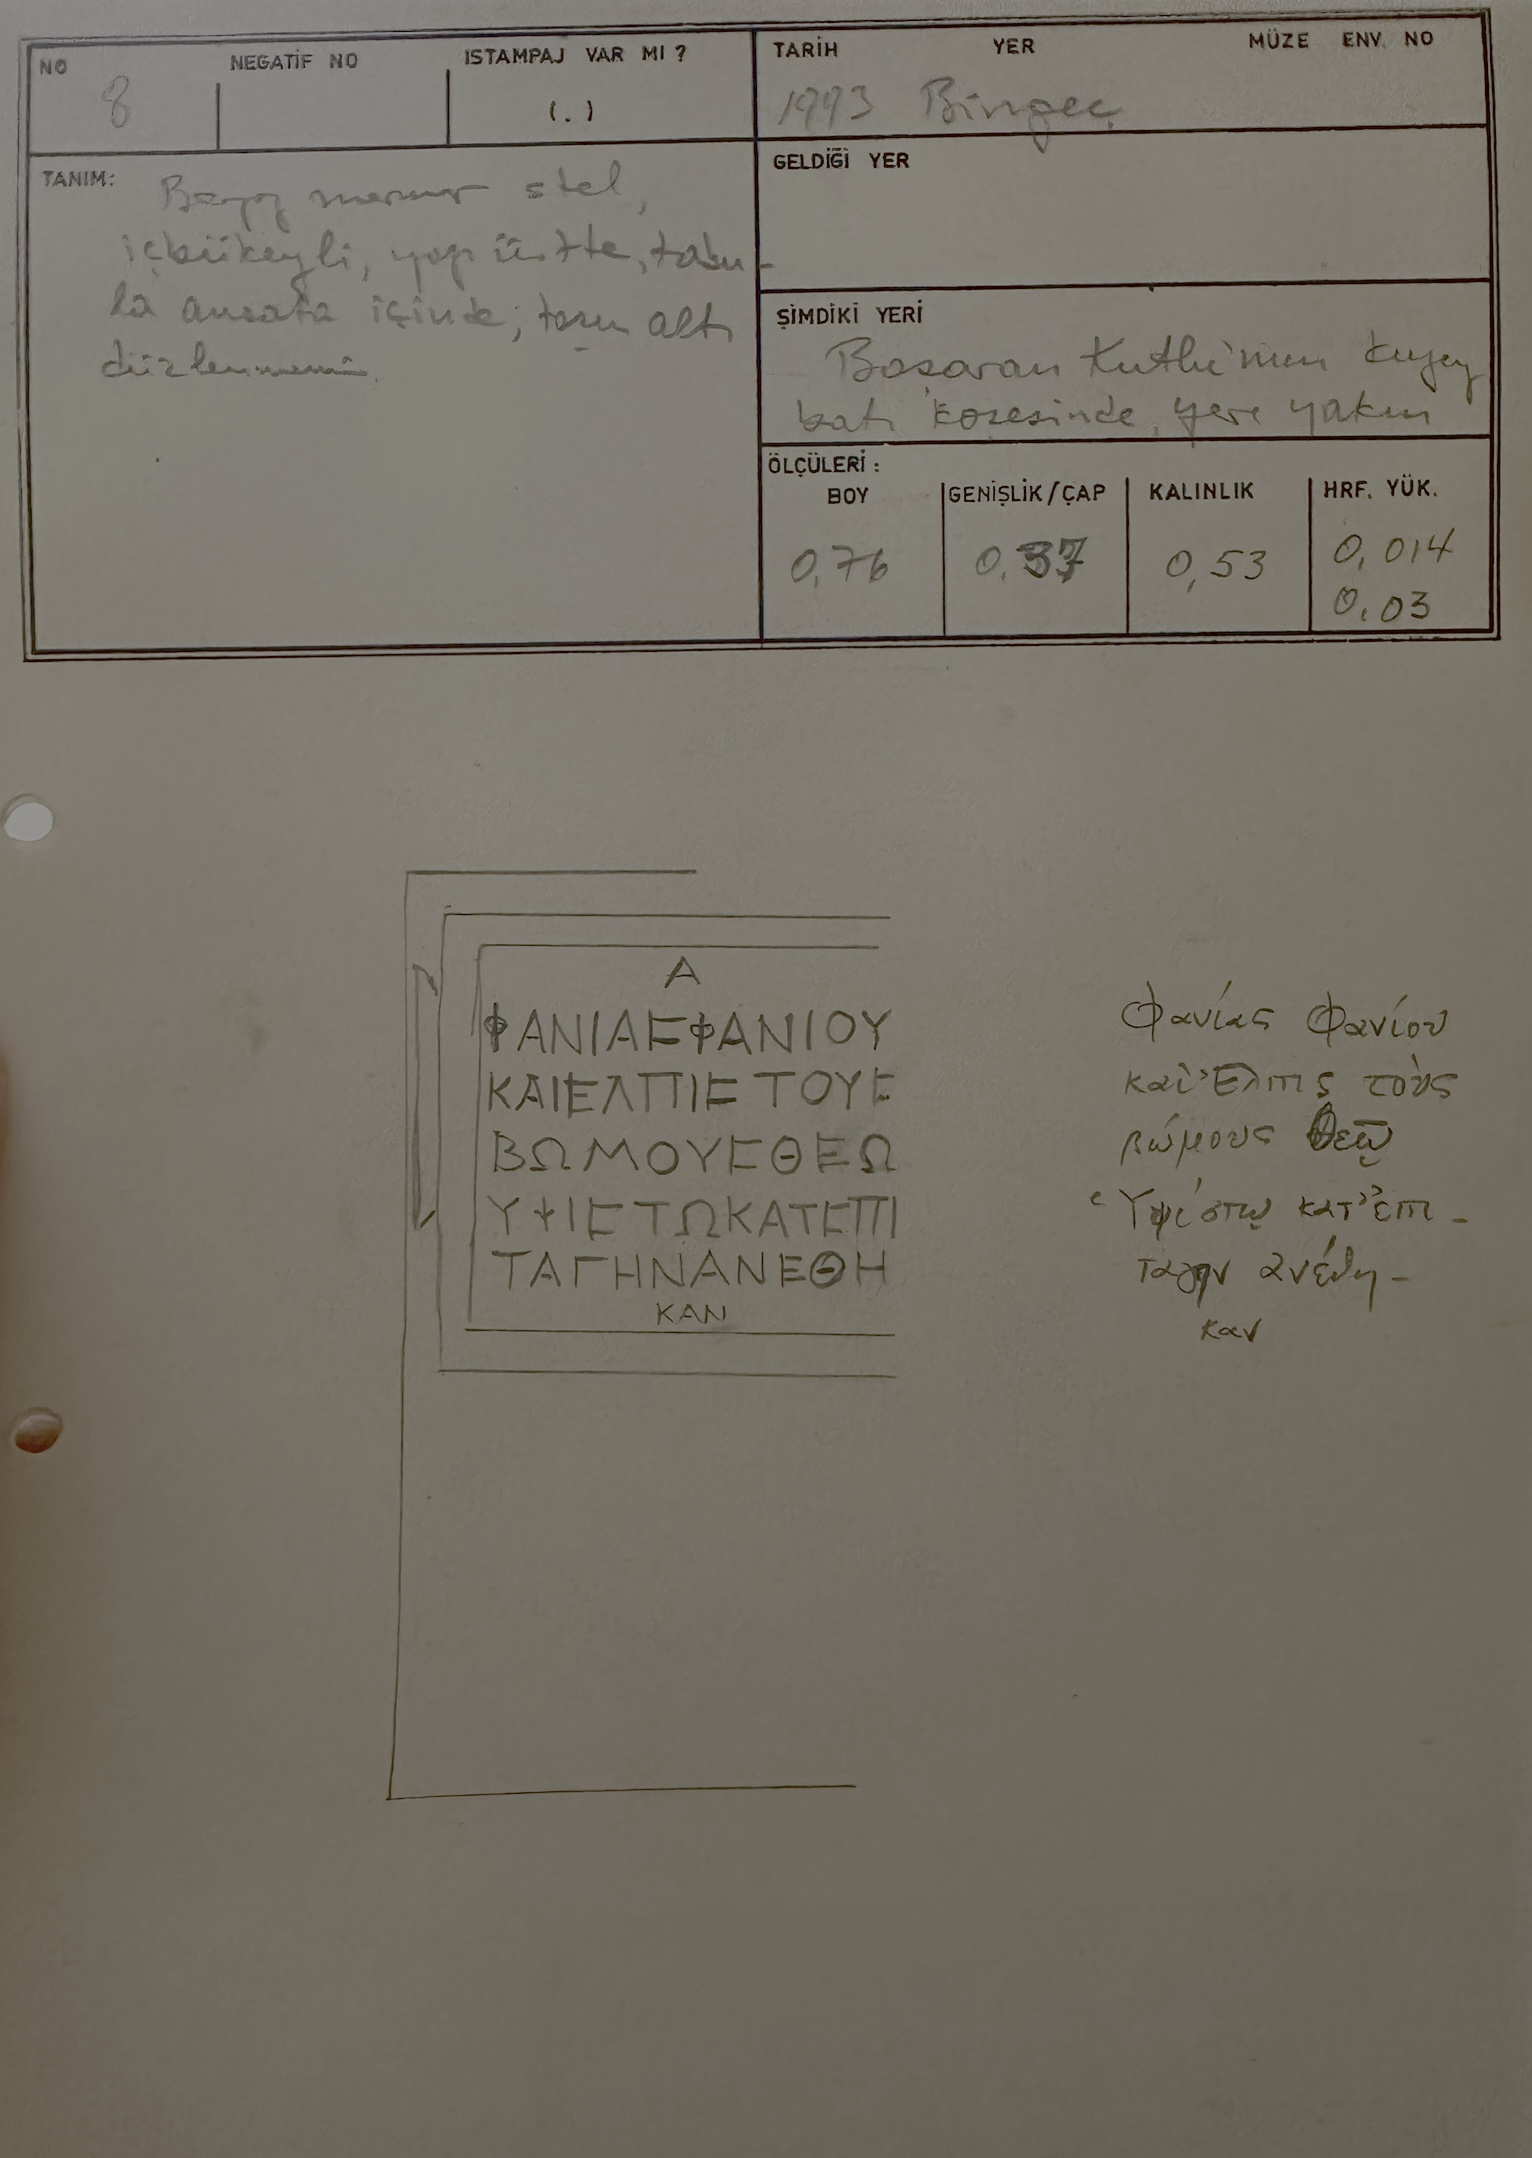 NO
8
NEGATİF NO
ISTAMPAJ VAR MI ?
( . )
TARİH YER MÜZE ENV. NO
1993 Bingeç
TANIM:
Beyaz mermer stel,
içbükeyli, yazı üstte, tabu-
la ansata içinde; taşın altı
düzlenmemiş.
GELDİĞİ YER
ŞİMDİKİ YERİ
Başaran Kutlu'nun kuzey
batı köşesinde, yere yakın
ÖLÇÜLERİ :
BOY
0,76
GENİŞLİK/ÇAP
0,37
KALINLIK
0,53
HRF. YÜK.
0,014
0,03
Α
ΦΑΝΙΑΣΦΑΝΙΟΥ
ΚΑΙΕΛΠΙΣΤΟΥΣ
ΒΩΜΟΥΣΘΕΩ
ΥΨΙΣΤΩΚΑΤΕΠΙ
ΤΑΓΗΝΑΝΕΘΗ
ΚΑΝ
Φανίας Φανίου
καὶ Ἐλπις τοὺς
βώμους Θεῷ
Ὑψίστῳ κατ' ἐπι-
ταγην ἀνέθη-
καν